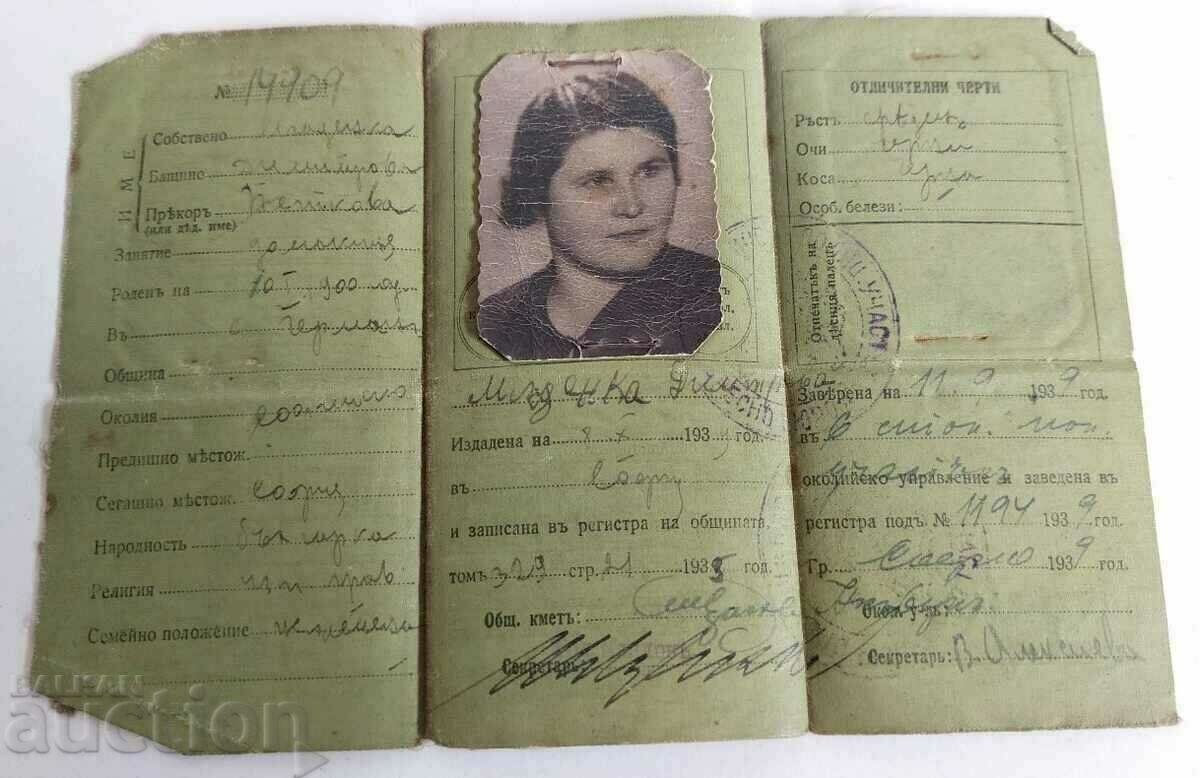 № 14409
ИМЕ
Собствено
Бащино
Прѣкоръ Петкова
(или дѣд. име)
Занятие домакиня
Роденъ на
Въ с. Герман
Община
Околия Софийско
Предишно мѣстож.
Сегашно мѣстож. София
Народность българка
Религия изт. прав
Семейно положение женена
Младенка
Издадена на 8 X 193 год.
въ София
и записана въ регистра на общината,
томъ 329 стр. 21 1935 год.
Общ. кметъ:
Секретарь:
ОТЛИЧИТЕЛНИ ЧЕРТИ
Ръстъ срѣденъ
Очи черни
Коса черна
Особ. белези:
Отпечатъкъ на
дѣсния палецъ
УЧАСТ
Завѣрена на 11. 9 1939 год.
въ 6 стол. пол.
околийско управление и заведена въ
регистра подъ № 1194 1939 год.
Гр. София 1939
Окол. у-къ:
Секретарь: В. Алексиева
БАЛКАН
auction